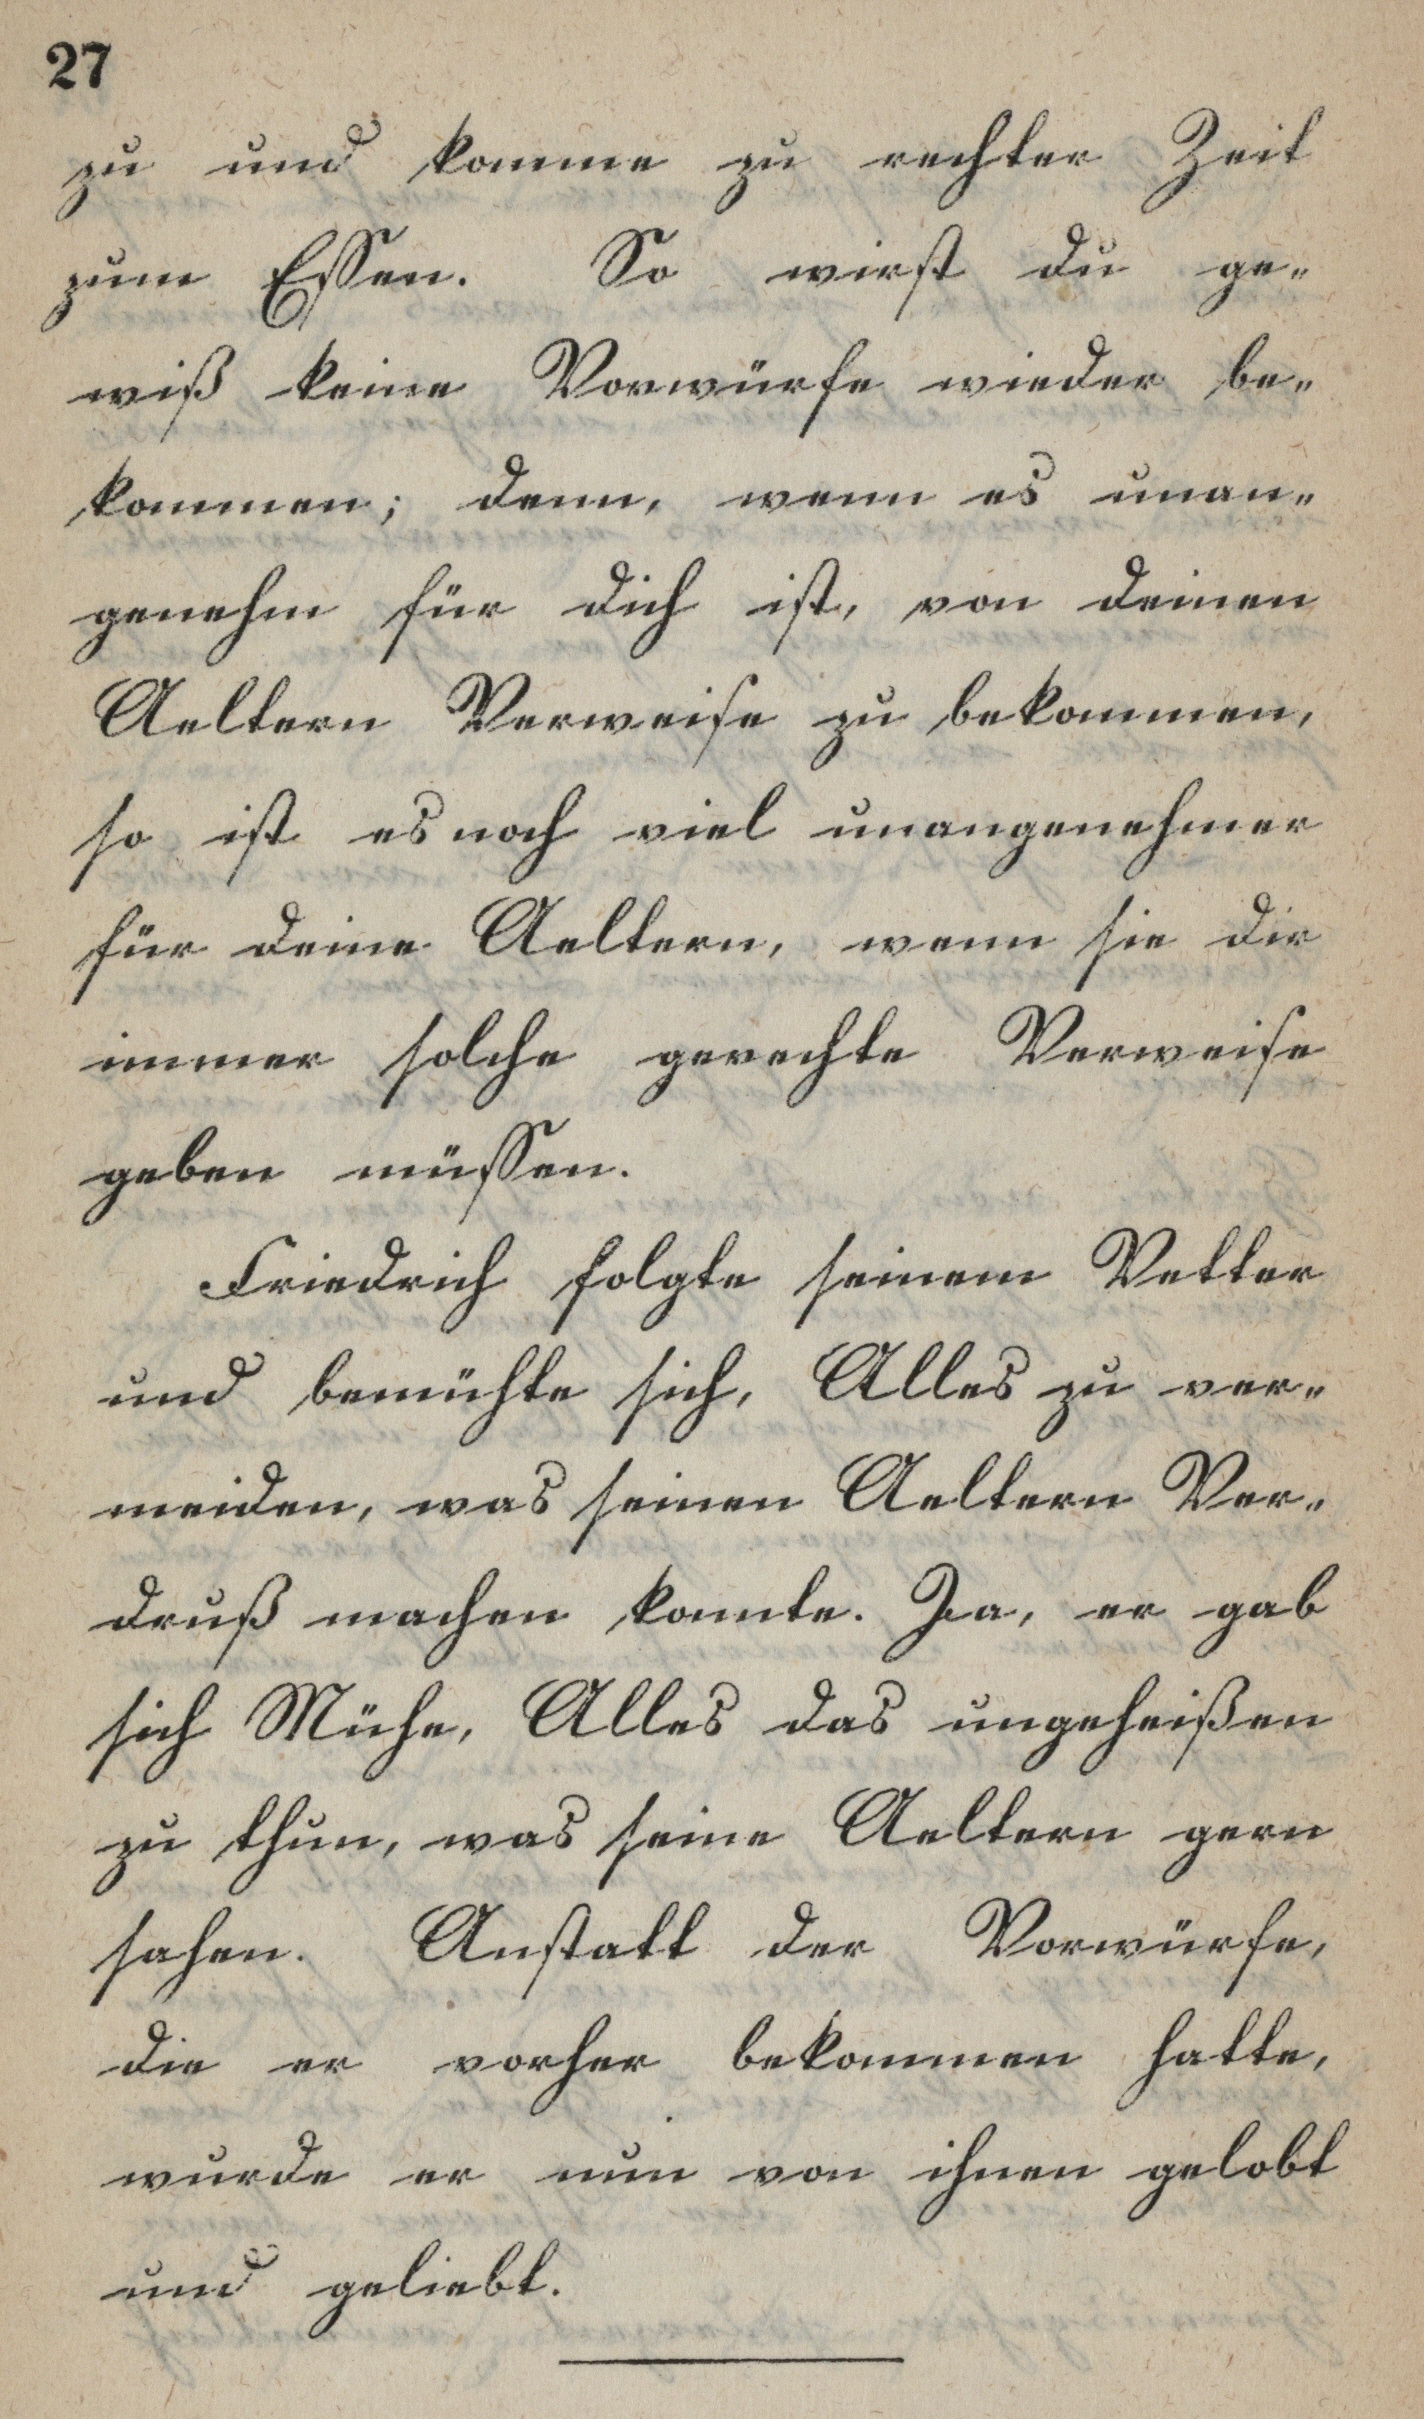 27
zu und komme zu rechter Zeit
zum Essen. So wirst du ge-
wiß keine Vorwürfe wieder be-
kommen; denn, wenn es unan-
genehm für dich ist, von deinen
Aeltern Verweise zu bekommen,
so ist es noch viel unangenehmer
für deine Aeltern, wenn sie dir
immer solche gerechte Verweise
geben müssen.
Friedrich folgte seinem Vetter
und bemühte sich, Alles zu ver-
meiden, was seinen Aeltern Ver-
druß machen konnte. Ja, er gab
sich Mühe, Alles das ungeheißen
zu thun, was seine Aeltern gern
sahen. Anstatt der Vorwürfe,
die er vorher bekommen hatte,
wurde er nun von ihnen gelobt
und geliebt.